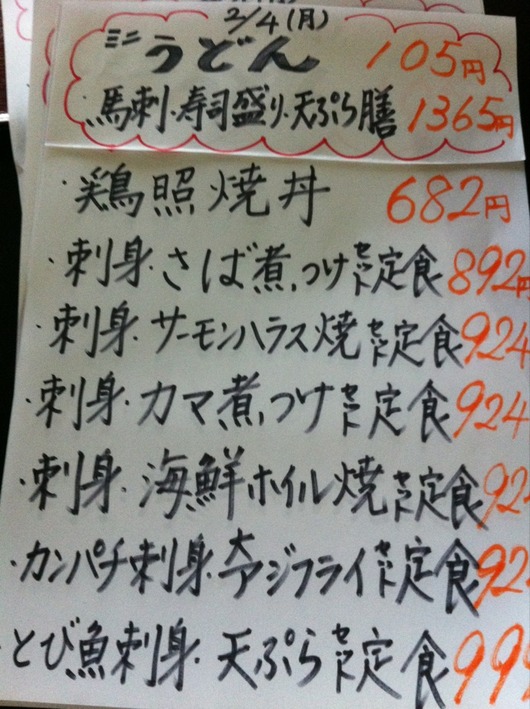 2/4(月)
ミニうどん 105円
・馬刺・寿司盛り・天ぷら膳 1365円
・鶏照焼丼 682円
・刺身・さば煮つけセット定食 892円
・刺身・サーモンハラス焼セット定食 924
・刺身・カマ煮つけセット定食 924
・刺身・海鮮ホイル焼セット定食 92
・カンパチ刺身・大アジフライセット定食 92
・とび魚刺身・天ぷらセット定食 99